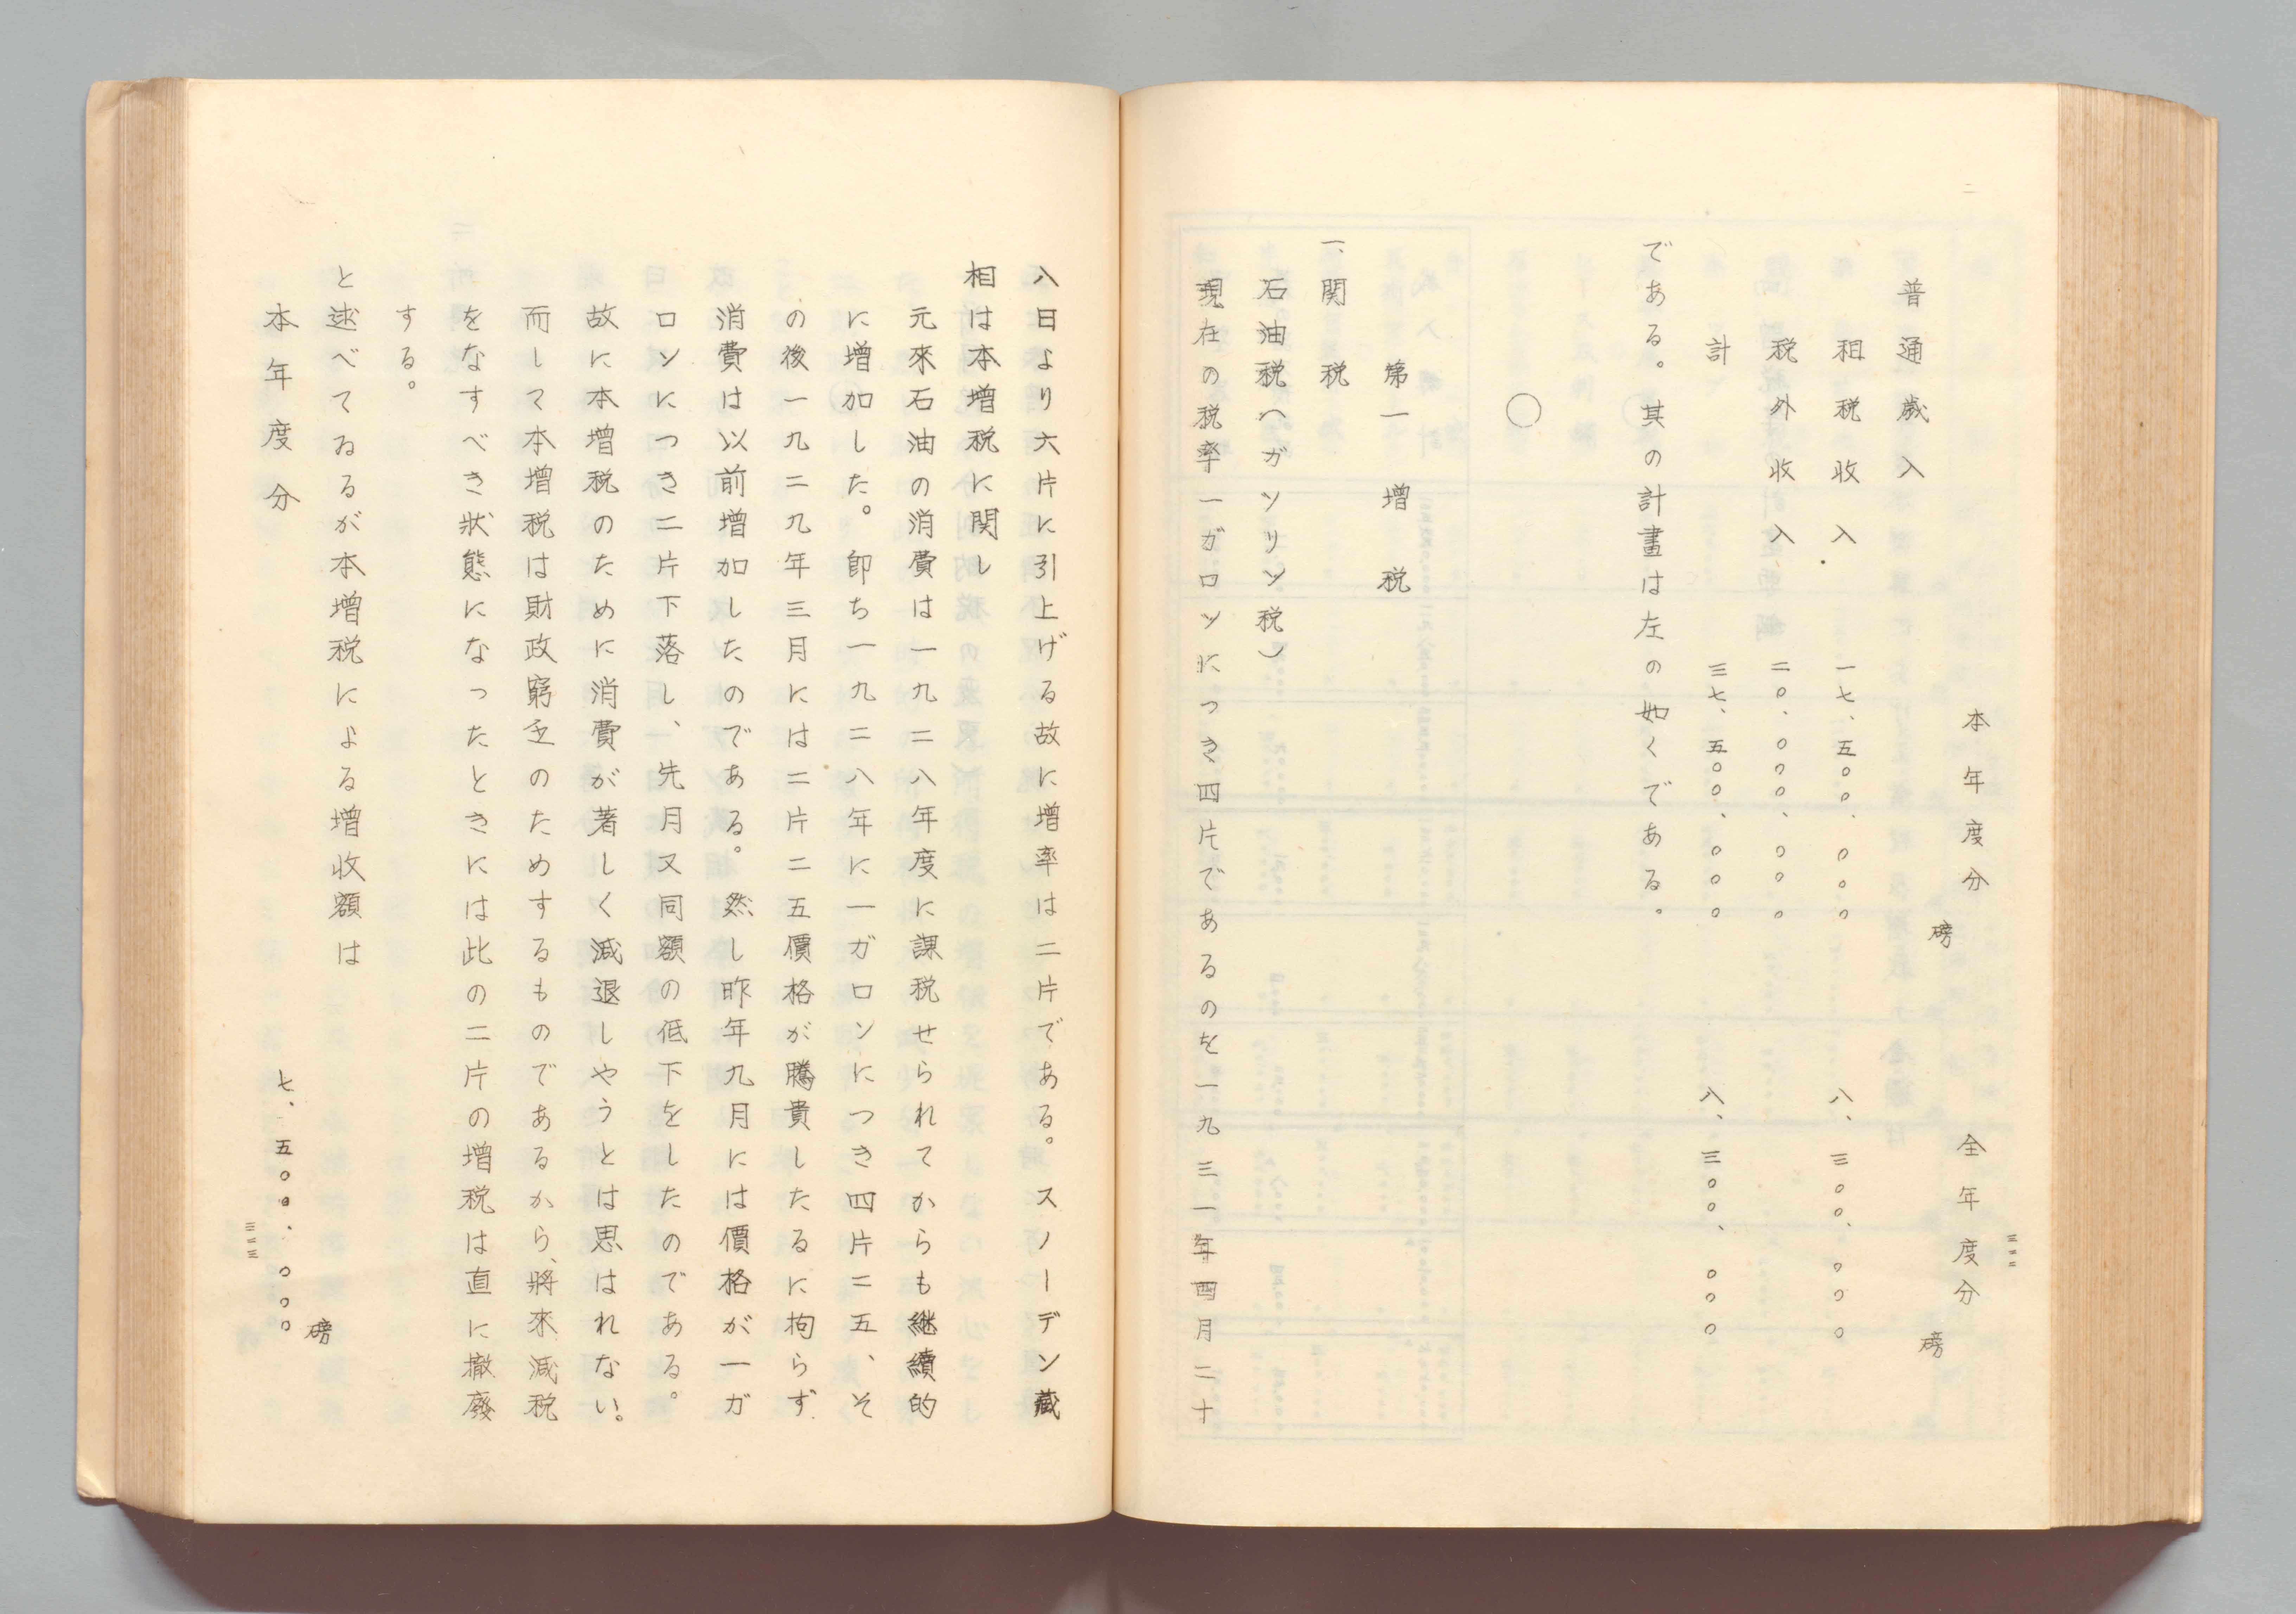 三三二
本年度分　全年度分
磅　磅
普通歳入
租税收入　一七、五〇〇、〇〇〇　八、三〇〇、〇〇〇
税外收入　二〇、〇〇〇、〇〇〇
計　三七、五〇〇、〇〇〇　八、三〇〇、〇〇〇
である。其の計畫は左の如くである。
〇
第一　增税
一、関税
石油税(ガソリン税)
現在の税率一ガロンにつき四片であるのを一九三一年四月二十
八日より六片に引上げる故に增率は二片である。スノーデン藏
相は本增税に関し
元來石油の消費は一九二八年度に課税せられてからも継續的
に增加した。卽ち一九二八年に一ガロンにつき四片二五、そ
の後一九二九年三月には二片二五價格が騰貴したるに拘らず
消費は以前增加したのである。然し昨年九月には價格が一ガ
ロンにつき二片下落し、先月又同額の低下をしたのである。
故に本增税のために消費が著しく減退しやうとは思はれない。
而して本增税は財政窮乏のためするものであるから、將來減税
をなすべき狀態になったときには此の二片の增税は直に撤廢
する。
と述べてゐるが本增税による增收額は
磅
本年度分　七、五〇〇、〇〇〇
三二三